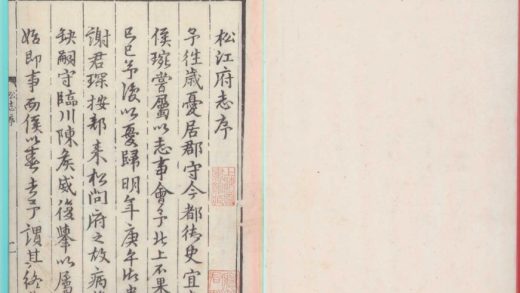 松江府志序
予往歲憂居郡守今都御史宜
侯琬嘗屬以志事會予北上不果
己巳予復以憂歸明年庚午
謝君琛按部来松問府之故病
缺嗣守臨川陳矦威復擧以屬
始即事而侯以去予謂其終
松志序